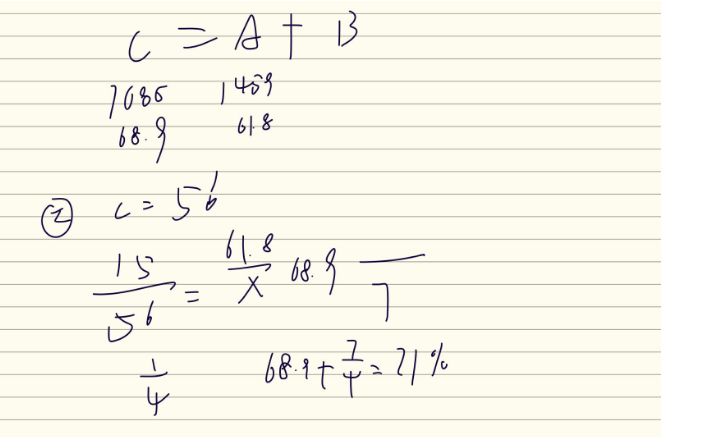 C = A + B
7085 1459
68.9 61.8
② C = 56
15/56 = 61.8/X 68.9 —/7
1/4 68.9 + 7/4 = 71%